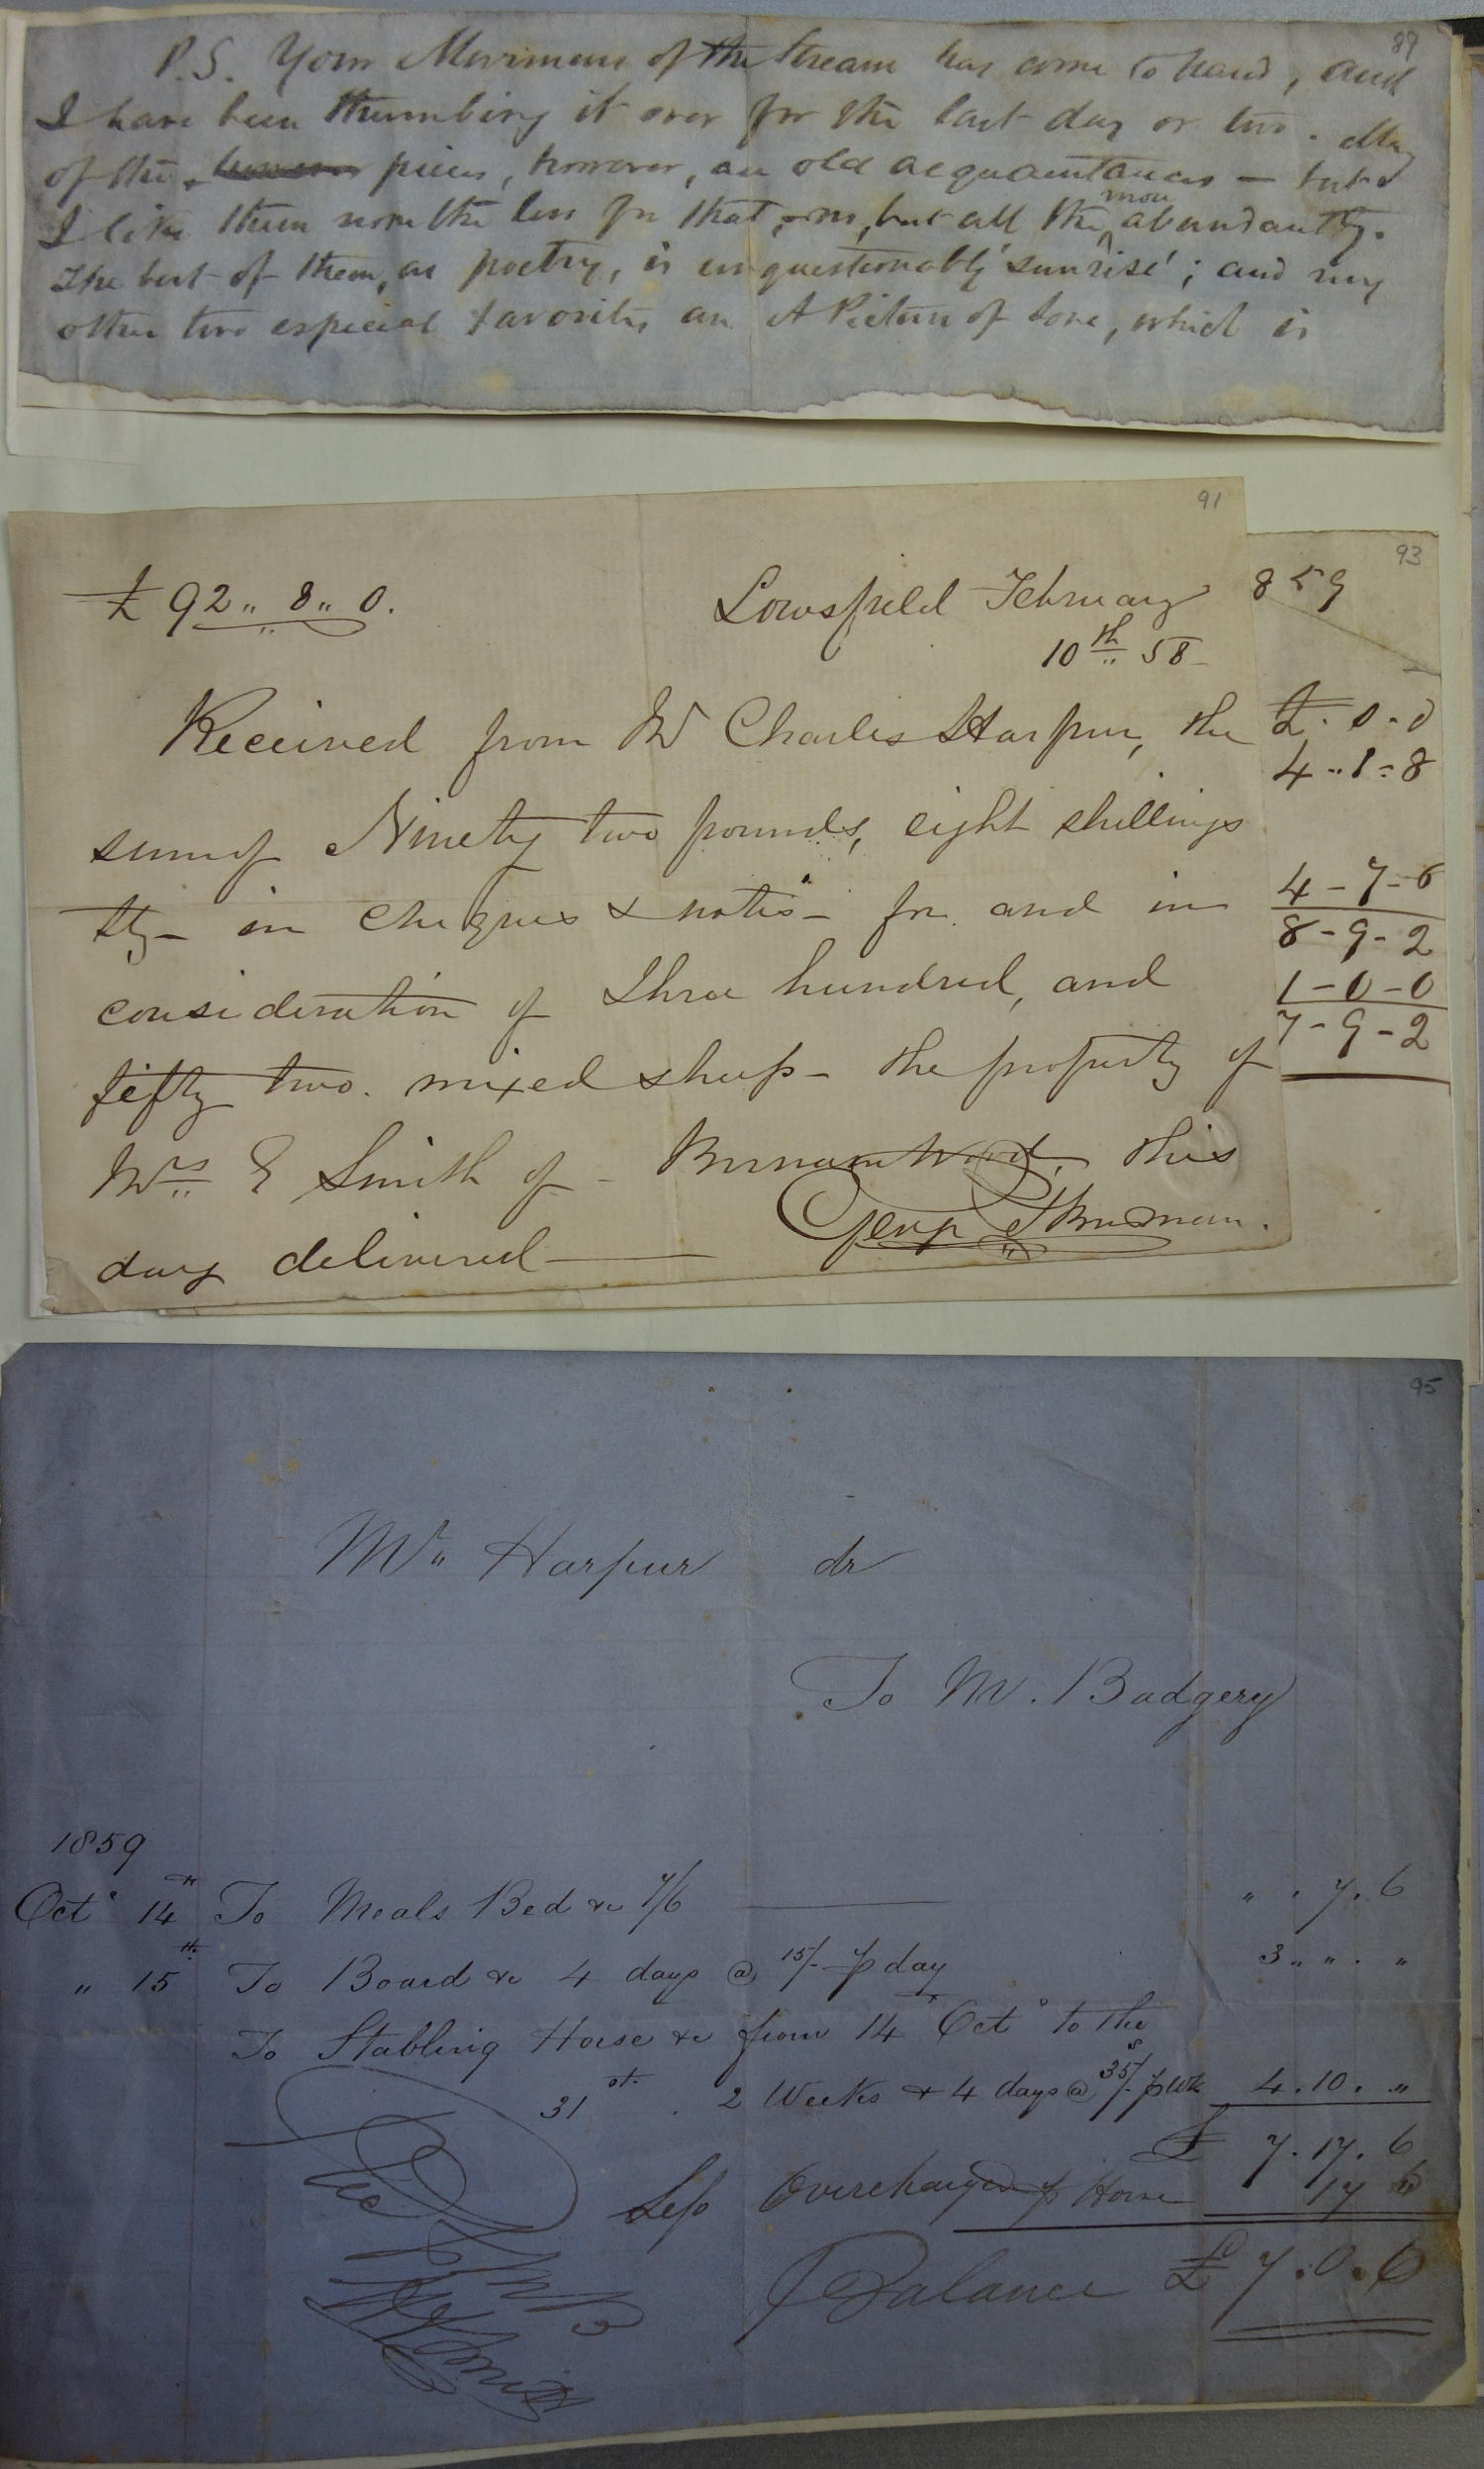 89
P.S. Your Murmurs of the Stream has come to hand, and
I have been thumbing it over for the last day or two. Many
of the pieces, however, are old acquaintances — but
I like them none the less for that, but all the more abundantly.
The best of them, as poetry, is unquestionably 'Sunrise'; and my
other two especial favorites are A Picture of Love, which is
91
£ 92 " 8 " 0.
Lowsfield February
10th 58
Received from Mr Charles Harpur, the
sum of Ninety two pounds, eight shillings
stg - in cheques & notes - for and in
consideration of Three hundred, and
fifty two. mixed sheep - the property of
Mrs E Smith of - Burnam Wood, this
day delivered
93
859
£ . s . d
4 " 1 - 8
4 - 7 - 6
8 - 9 - 2
1 - 0 - 0
7 - 9 - 2
95
Mr Harpur dr
To M. Badgery
1859
Oct 14th To Meals Bed &c 7/6 " . 7 . 6
" 15th To Board &c 4 days @ 15/- p day 3 " " . "
To Stabling Horse &c from 14th Oct to the
31st. 2 Weeks & 4 days @ 35/- p Wk 4 . 10 . "
£ 7 . 17 . 6
Less Overcharged p Horse 17
Balance £ 7 . 0 . 6